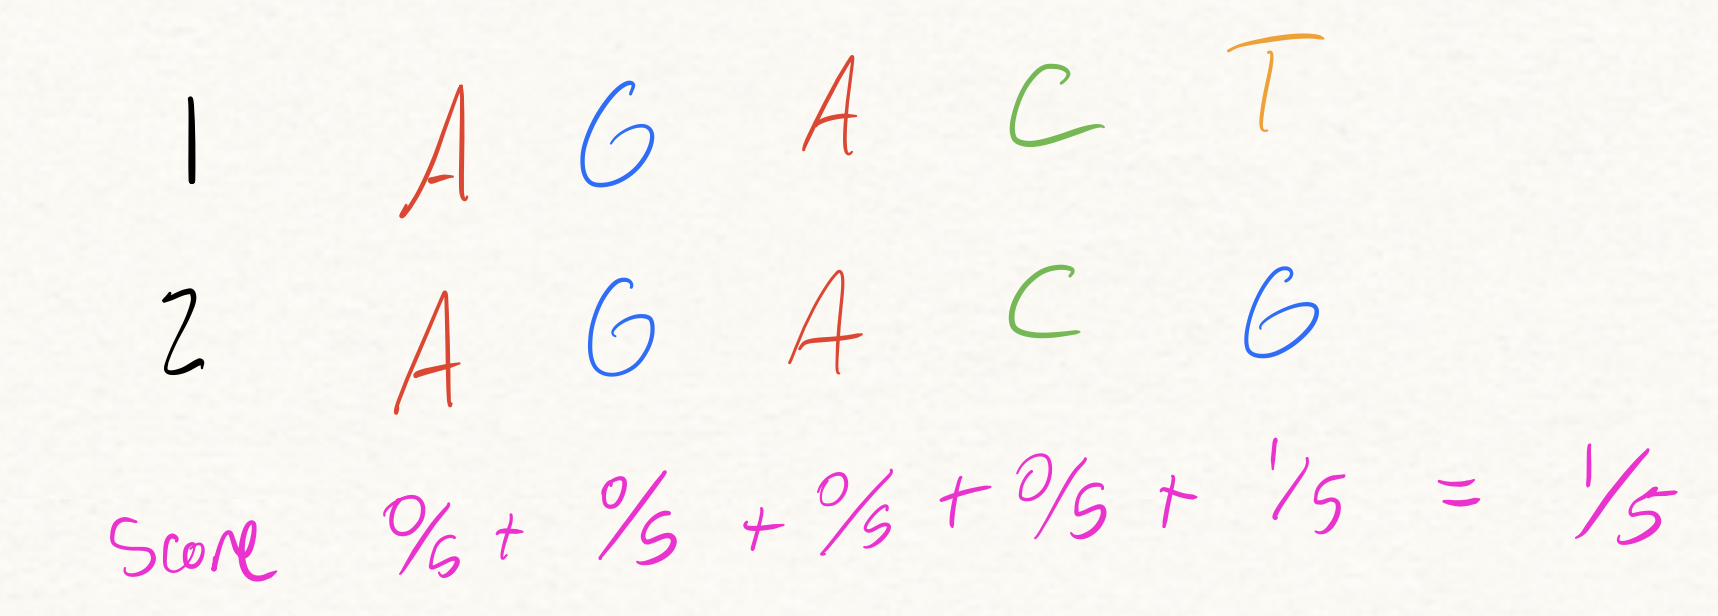 1 A G A C T
2 A G A C G
Score 0/5 + 0/5 + 0/5 + 0/5 + 1/5 = 1/5